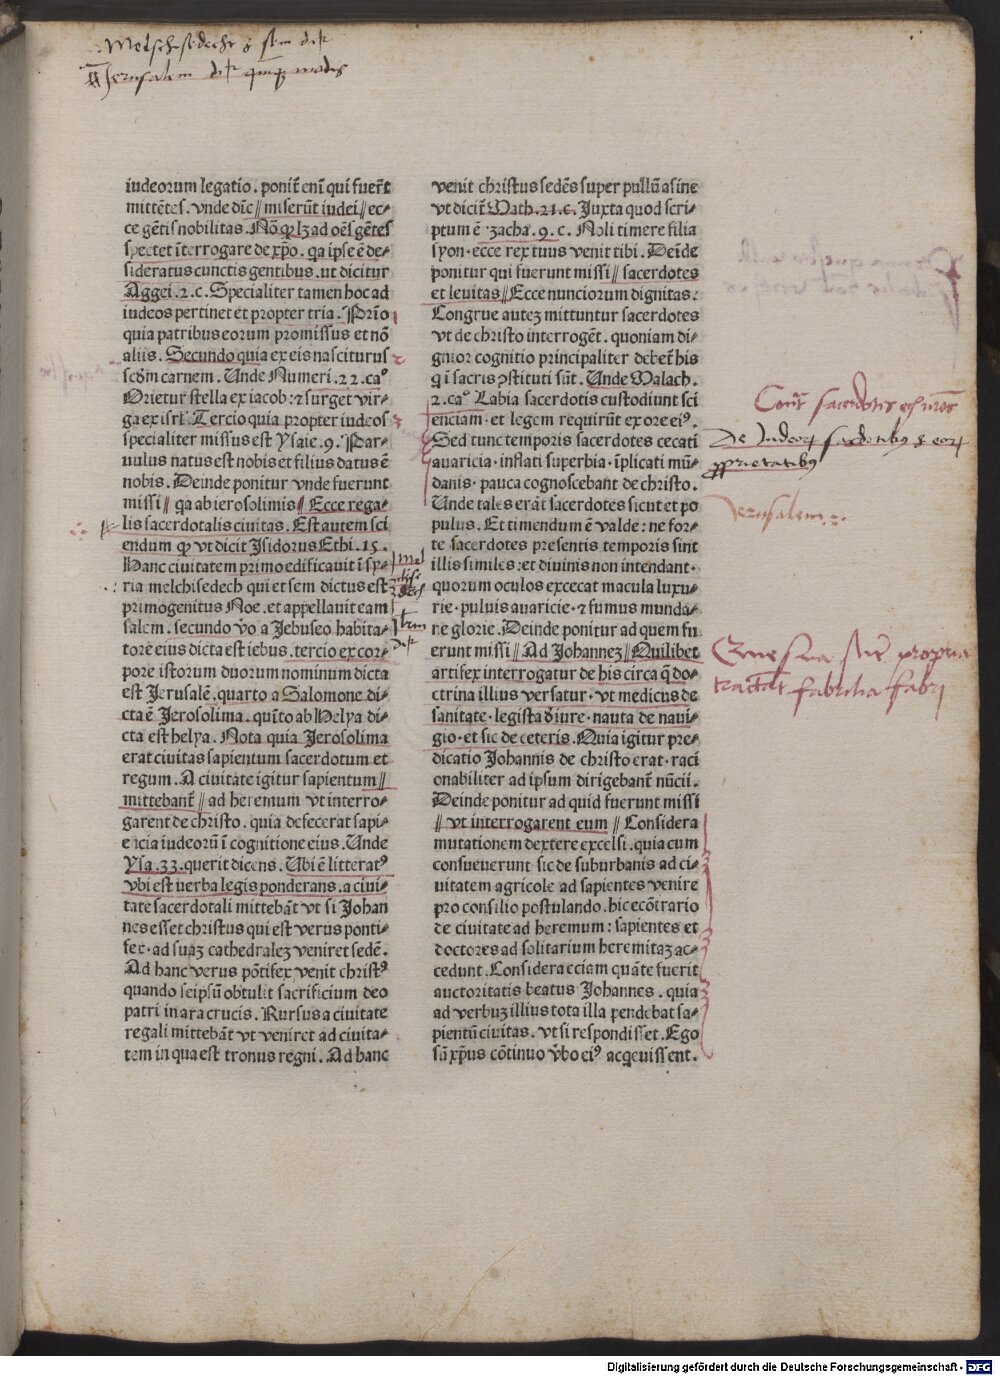 Melchisedech & sem dr̄
Jerusalem dr̄ quinq̄ modis
iudeorum legatio. ponit̄ eni̅ qui fuer̄t
mitte̅tes. vnde dic̄ || miseru̅t iudei || ec-
ce ge̅tis nobilitas. No̅ ꝙ lꝫ ad oe̅s ge̅tes
spectet i̅terrogare de xp̅o. qa ipse e̅ de-
sideratus cunctis gentibus. ut dicitur
Aggei. 2. c. Specialiter tamen hoc ad
iudeos pertinet et propter tria. Prio̅
quia patribus eorum promissus et no̅
aliis. Secundo quia ex eis nasciturus
scd̅m carnem. Unde Numeri. 22. caº
Orietur stella ex iacob: ⁊ surget vir-
ga ex isrl̅. Tercio quia propter iudeos
specialiter missus est Ysaie. 9. Par-
uulus natus est nobis et filius datus e̅
nobis. Deinde ponitur vnde fuerunt
missi || qa ab ierosolimis || Ecce rega-
lis sacerdotalis ciuitas. Est autem sci
endum ꝙ vt dicit Isidorus Ethi. 15.
Hanc ciuitatem primo edificauit i̅ sy-
ria melchisedech qui et sem dictus est
primogenitus Noe. et appellauit eam
salem. secundo v̅o a Jebuseo habita-
tore eius dicta est iebus. tercio ex cor-
pore istorum duorum nominum dicta
est Jerusale̅. quarto a Salomone di-
cta e̅ Jerosolima. qui̅to ab Helya di-
cta est helya. Nota quia Jerosolima
erat ciuitas sapientum sacerdotum et
regum. A ciuitate igitur sapientum ||
mittebant̄ || ad heremum vt interro-
garent de christo. quia defecerat sapi-
encia iudeoru̅ i̅ cognitione eius. Unde
Ysa. 33. querit dicens. Ubi e̅ litteratꝰ
vbi est uerba legis ponderans. a ciui-
tate sacerdotali mitteba̅t vt si Johan
nes esset christus qui est verus ponti-
fex. ad suaꝫ cathedraleꝫ veniret sede̅.
Ad hanc verus po̅tifex venit christꝰ
quando seipsu̅ obtulit sacrificium deo
patri in ara crucis. Rursus a ciuitate
regali mitteba̅t vt veniret ad ciuita-
tem in qua est tronus regni. Ad hanc
venit christus sede̅s super pullu̅ asine
vt dicit̄ Math. 21. c. Juxta quod scri-
ptum e̅. zacha. 9. c. Noli timere filia
syon. ecce rex tuus venit tibi. Dei̅de
ponitur qui fuerunt missi || sacerdotes
et leuitas || Ecce nunciorum dignitas.
Congrue auteꝫ mittuntur sacerdotes
vt de christo interroge̅t. quoniam di-
gnior cognitio principaliter debet̄ his
q̇ i̅ sacris ꝯstituti su̅t. Unde Malach.
2. caº Labia sacerdotis custodiunt sci
enciam. et legem requiru̅t ex ore eiꝰ.
Sed tunc temporis sacerdotes cecati
auaricia. inflati superbia. i̅plicati mu̅-
danis. pauca cognoscebant de christo.
Unde tales era̅t sacerdotes sicut et po
pulus. Et timendum e̅ valde: ne for-
te sacerdotes presentis temporis sint
illis similes: et diuinis non intendant.
quorum oculos excecat macula luxu-
rie. puluis auaricie. ⁊ fumus munda-
ne glorie. Deinde ponitur ad quem fu
erunt missi || Ad Johanneꝫ || Quilibet
artifex interrogatur de his circa q̅ do-
ctrina illius versatur. vt medicus de
sanitate. legista d̅ iure. nauta de naui-
gio. et sic de ceteris. Quia igitur pre-
dicatio Johannis de christo erat. raci
onabiliter ad ipsum dirigebant̄ nu̅cii.
Deinde ponitur ad quid fuerunt missi
|| vt interrogarent eum || Considera
mutationem dextere excelsi. quia cum
consueuerunt sic de suburbanis ad ci-
uitatem agricole ad sapientes venire
pro consilio postulando. hic eco̅trario
de ciuitate ad heremum: sapientes et
doctores ad solitarium heremitaꝫ ac-
cedunt. Considera eciam qua̅te fuerit
auctoritatis beatus Johannes. quia
ad verbuꝫ illius tota illa pendebat sa-
pientu̅ ciuitas. vt si respondisset. Ego
su̅ xp̅us co̅tinuo v̅bo eiꝰ acqeuissent.
De Iudeorꝫ sacerdotibꝰ & eorꝫ
ꝓprietatibꝰ
Jerusalem
Digitalisierung gefördert durch die Deutsche Forschungsgemeinschaft - DFG